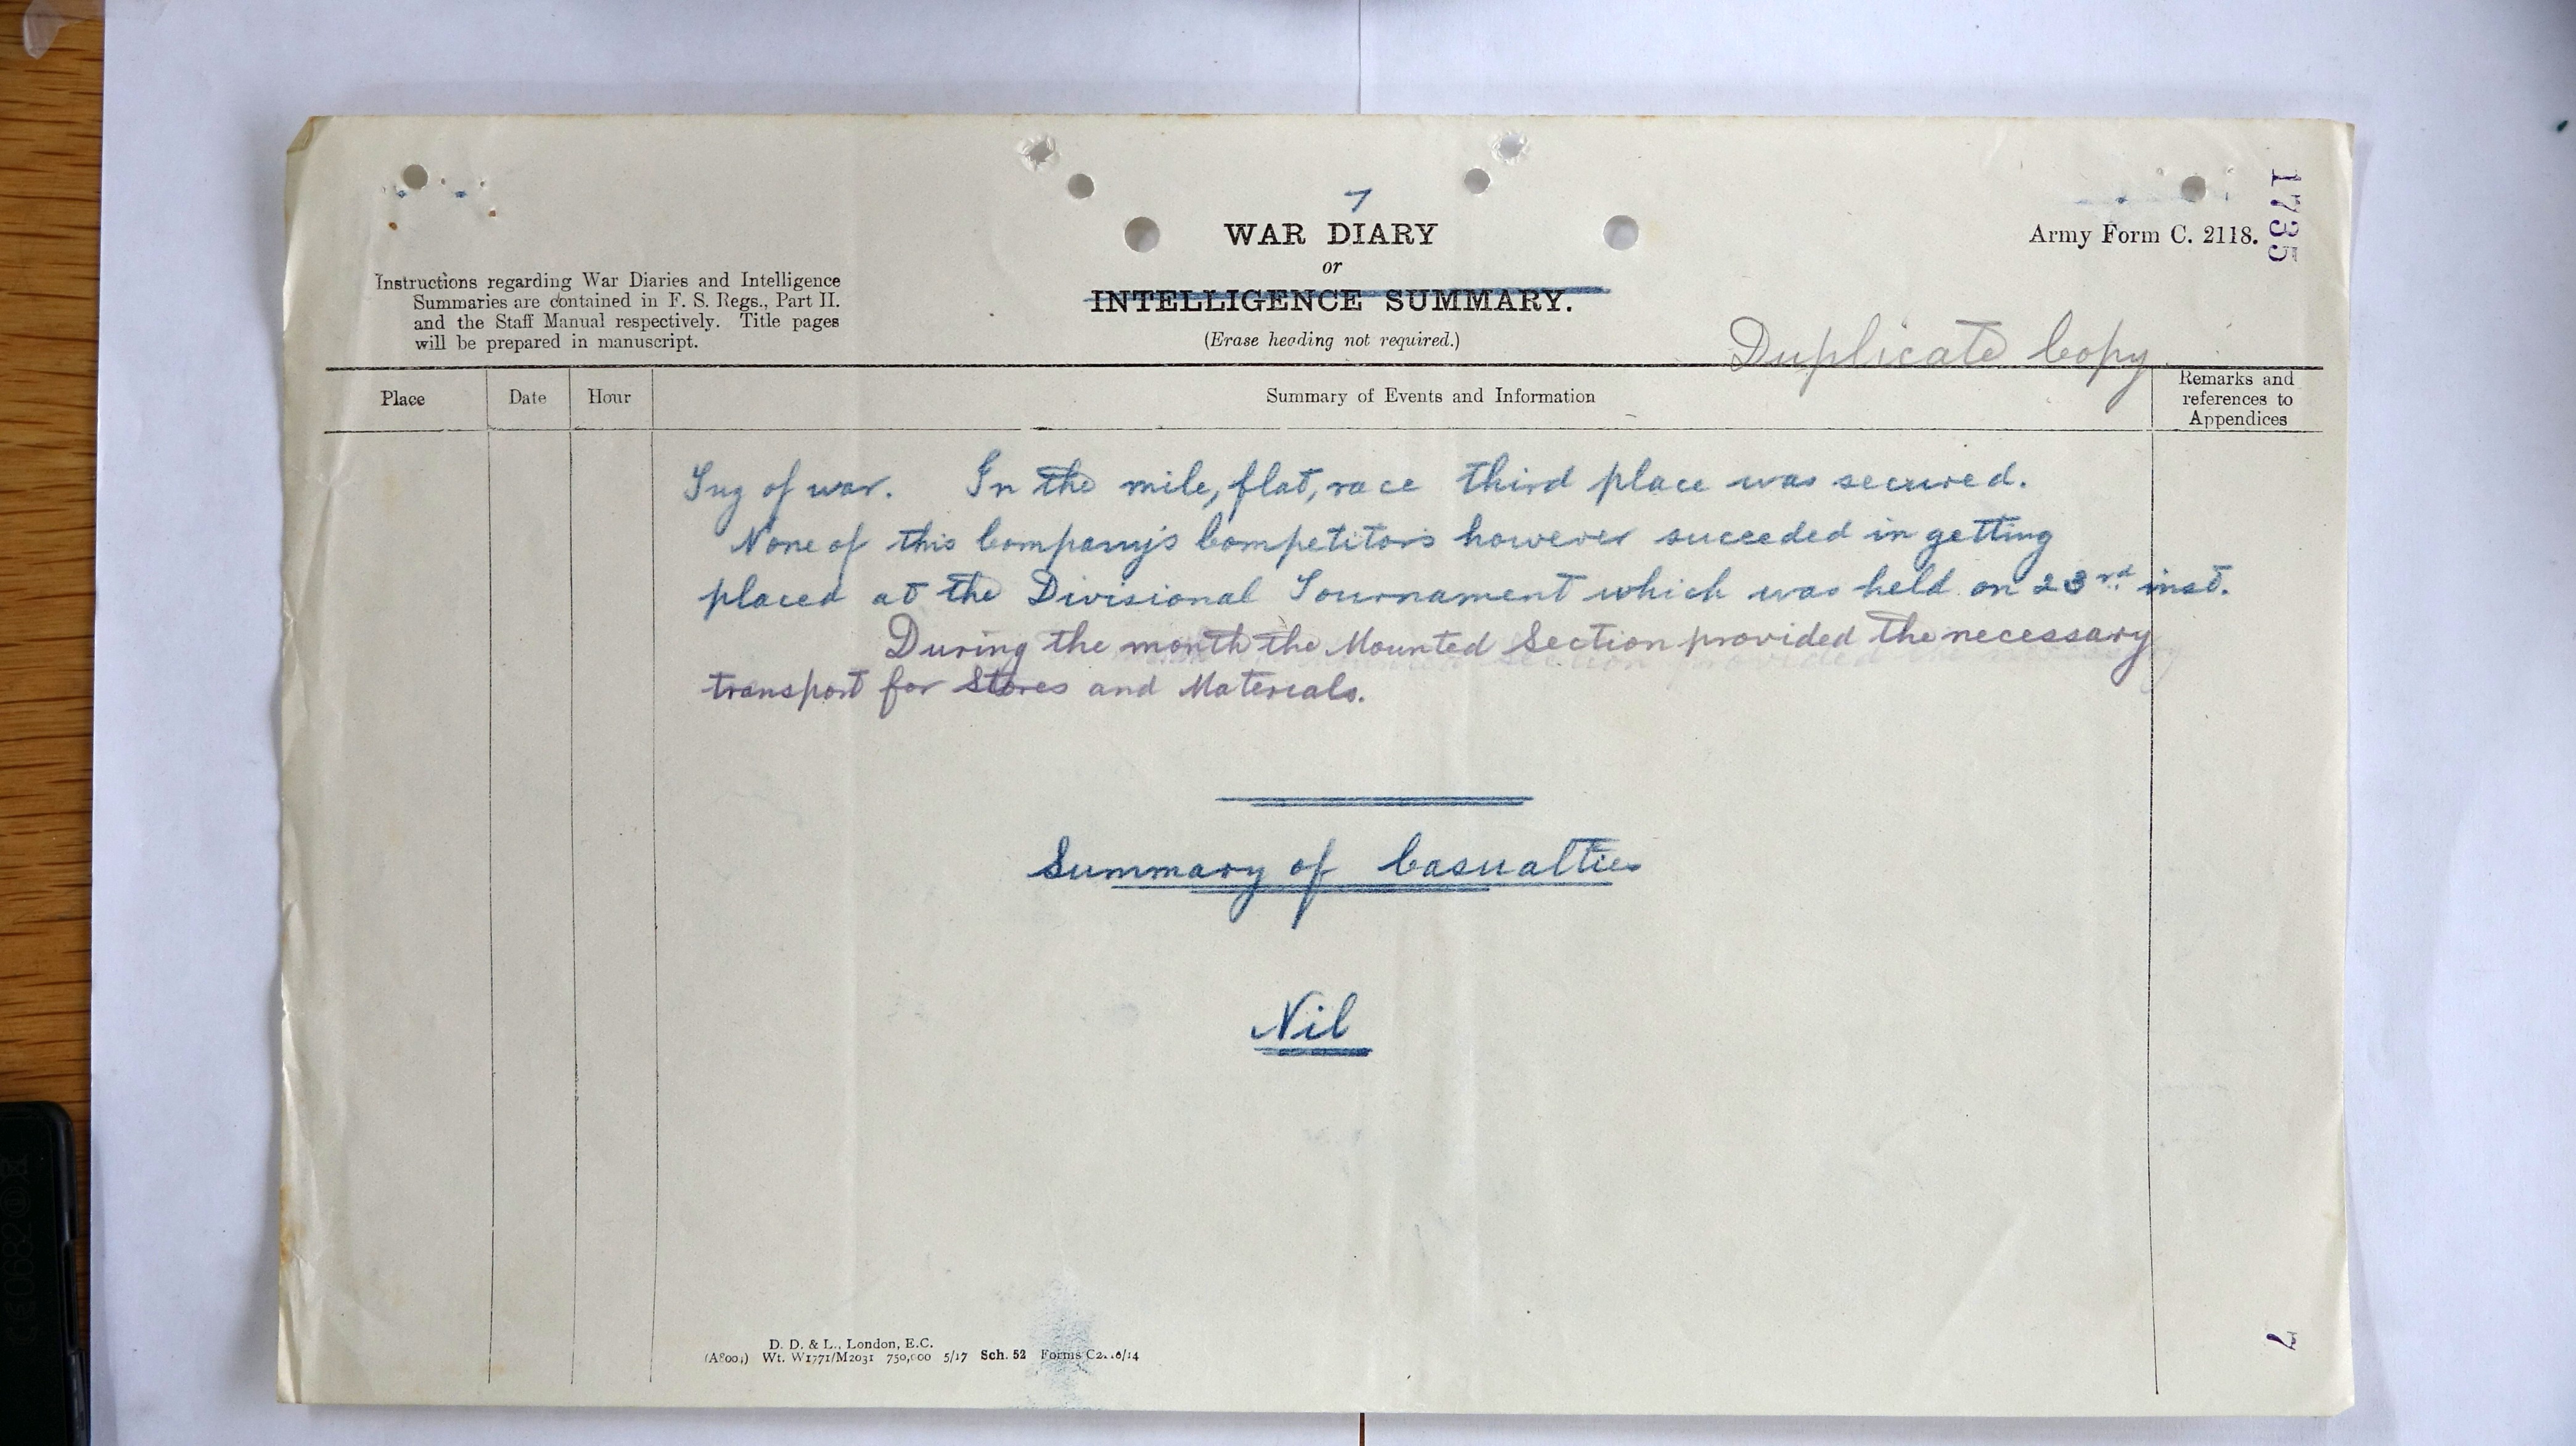 7
WAR DIARY
or
INTELLIGENCE SUMMARY.
(Erase heading not required.)
Army Form C. 2118.
1735
Instructions regarding War Diaries and Intelligence
Summaries are contained in F. S. Regs., Part II.
and the Staff Manual respectively. Title pages
will be prepared in manuscript.
Duplicate Copy
Place
Date
Hour
Summary of Events and Information
Remarks and
references to
Appendices
Tug of war. In the mile, flat, race third place was secured.
None of this Company's Competitors however succeeded in getting
placed at the Divisional Tournament which was held on 23rd inst.
During the month the Mounted Section provided the necessary
transport for Stores and Materials.
Summary of Casualties
Nil
D. D. & L., London, E.C.
Wt. W1771/M2031 750,000 5/17 Sch. 52 Forms
7